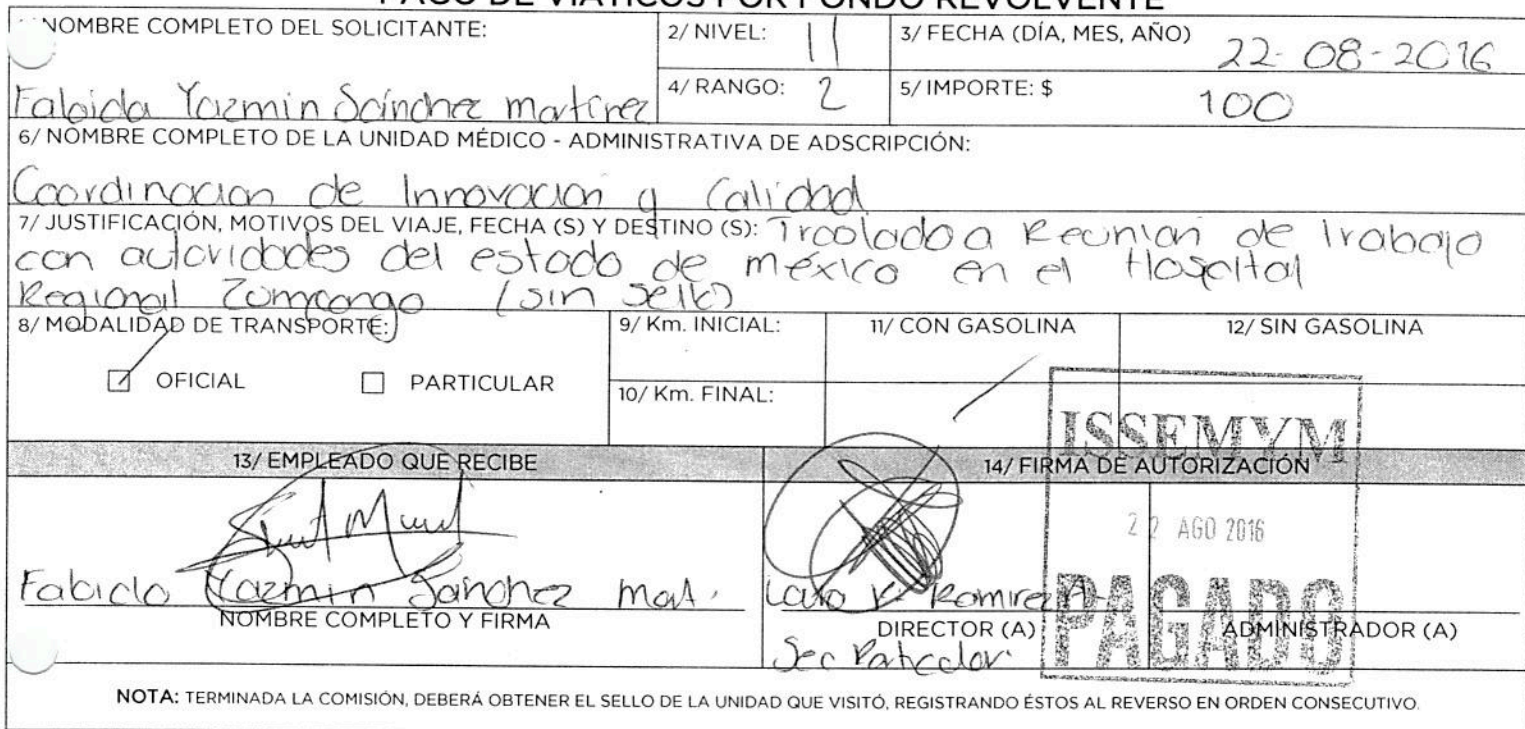 PAGO DE VIÁTICOS POR FONDO REVOLVENTE
NOMBRE COMPLETO DEL SOLICITANTE:
Fabiola Yazmin Sánchez martínez
2/ NIVEL: 11
3/ FECHA (DÍA, MES, AÑO) 22-08-2016
4/ RANGO: 2
5/ IMPORTE: $ 100
6/ NOMBRE COMPLETO DE LA UNIDAD MÉDICO - ADMINISTRATIVA DE ADSCRIPCIÓN:
Coordinacion de Innovacion y Calidad
7/ JUSTIFICACIÓN, MOTIVOS DEL VIAJE, FECHA (S) Y DESTINO (S): Traslado a Reunion de Trabajo
con autoridades del estado de méxico en el Hospital
Regional Zumpango (sin sello)
8/ MODALIDAD DE TRANSPORTE:
OFICIAL
PARTICULAR
9/ Km. INICIAL:
10/ Km. FINAL:
11/ CON GASOLINA
12/ SIN GASOLINA
13/ EMPLEADO QUE RECIBE
Fabiola Yazmin Sanchez mat.
NOMBRE COMPLETO Y FIRMA
14/ FIRMA DE AUTORIZACIÓN
Ramirez A.
DIRECTOR (A)
Sec Particular.
ADMINISTRADOR (A)
ISSEMYM
22 AGO 2016
PAGADO
NOTA: TERMINADA LA COMISIÓN, DEBERÁ OBTENER EL SELLO DE LA UNIDAD QUE VISITÓ, REGISTRANDO ÉSTOS AL REVERSO EN ORDEN CONSECUTIVO.